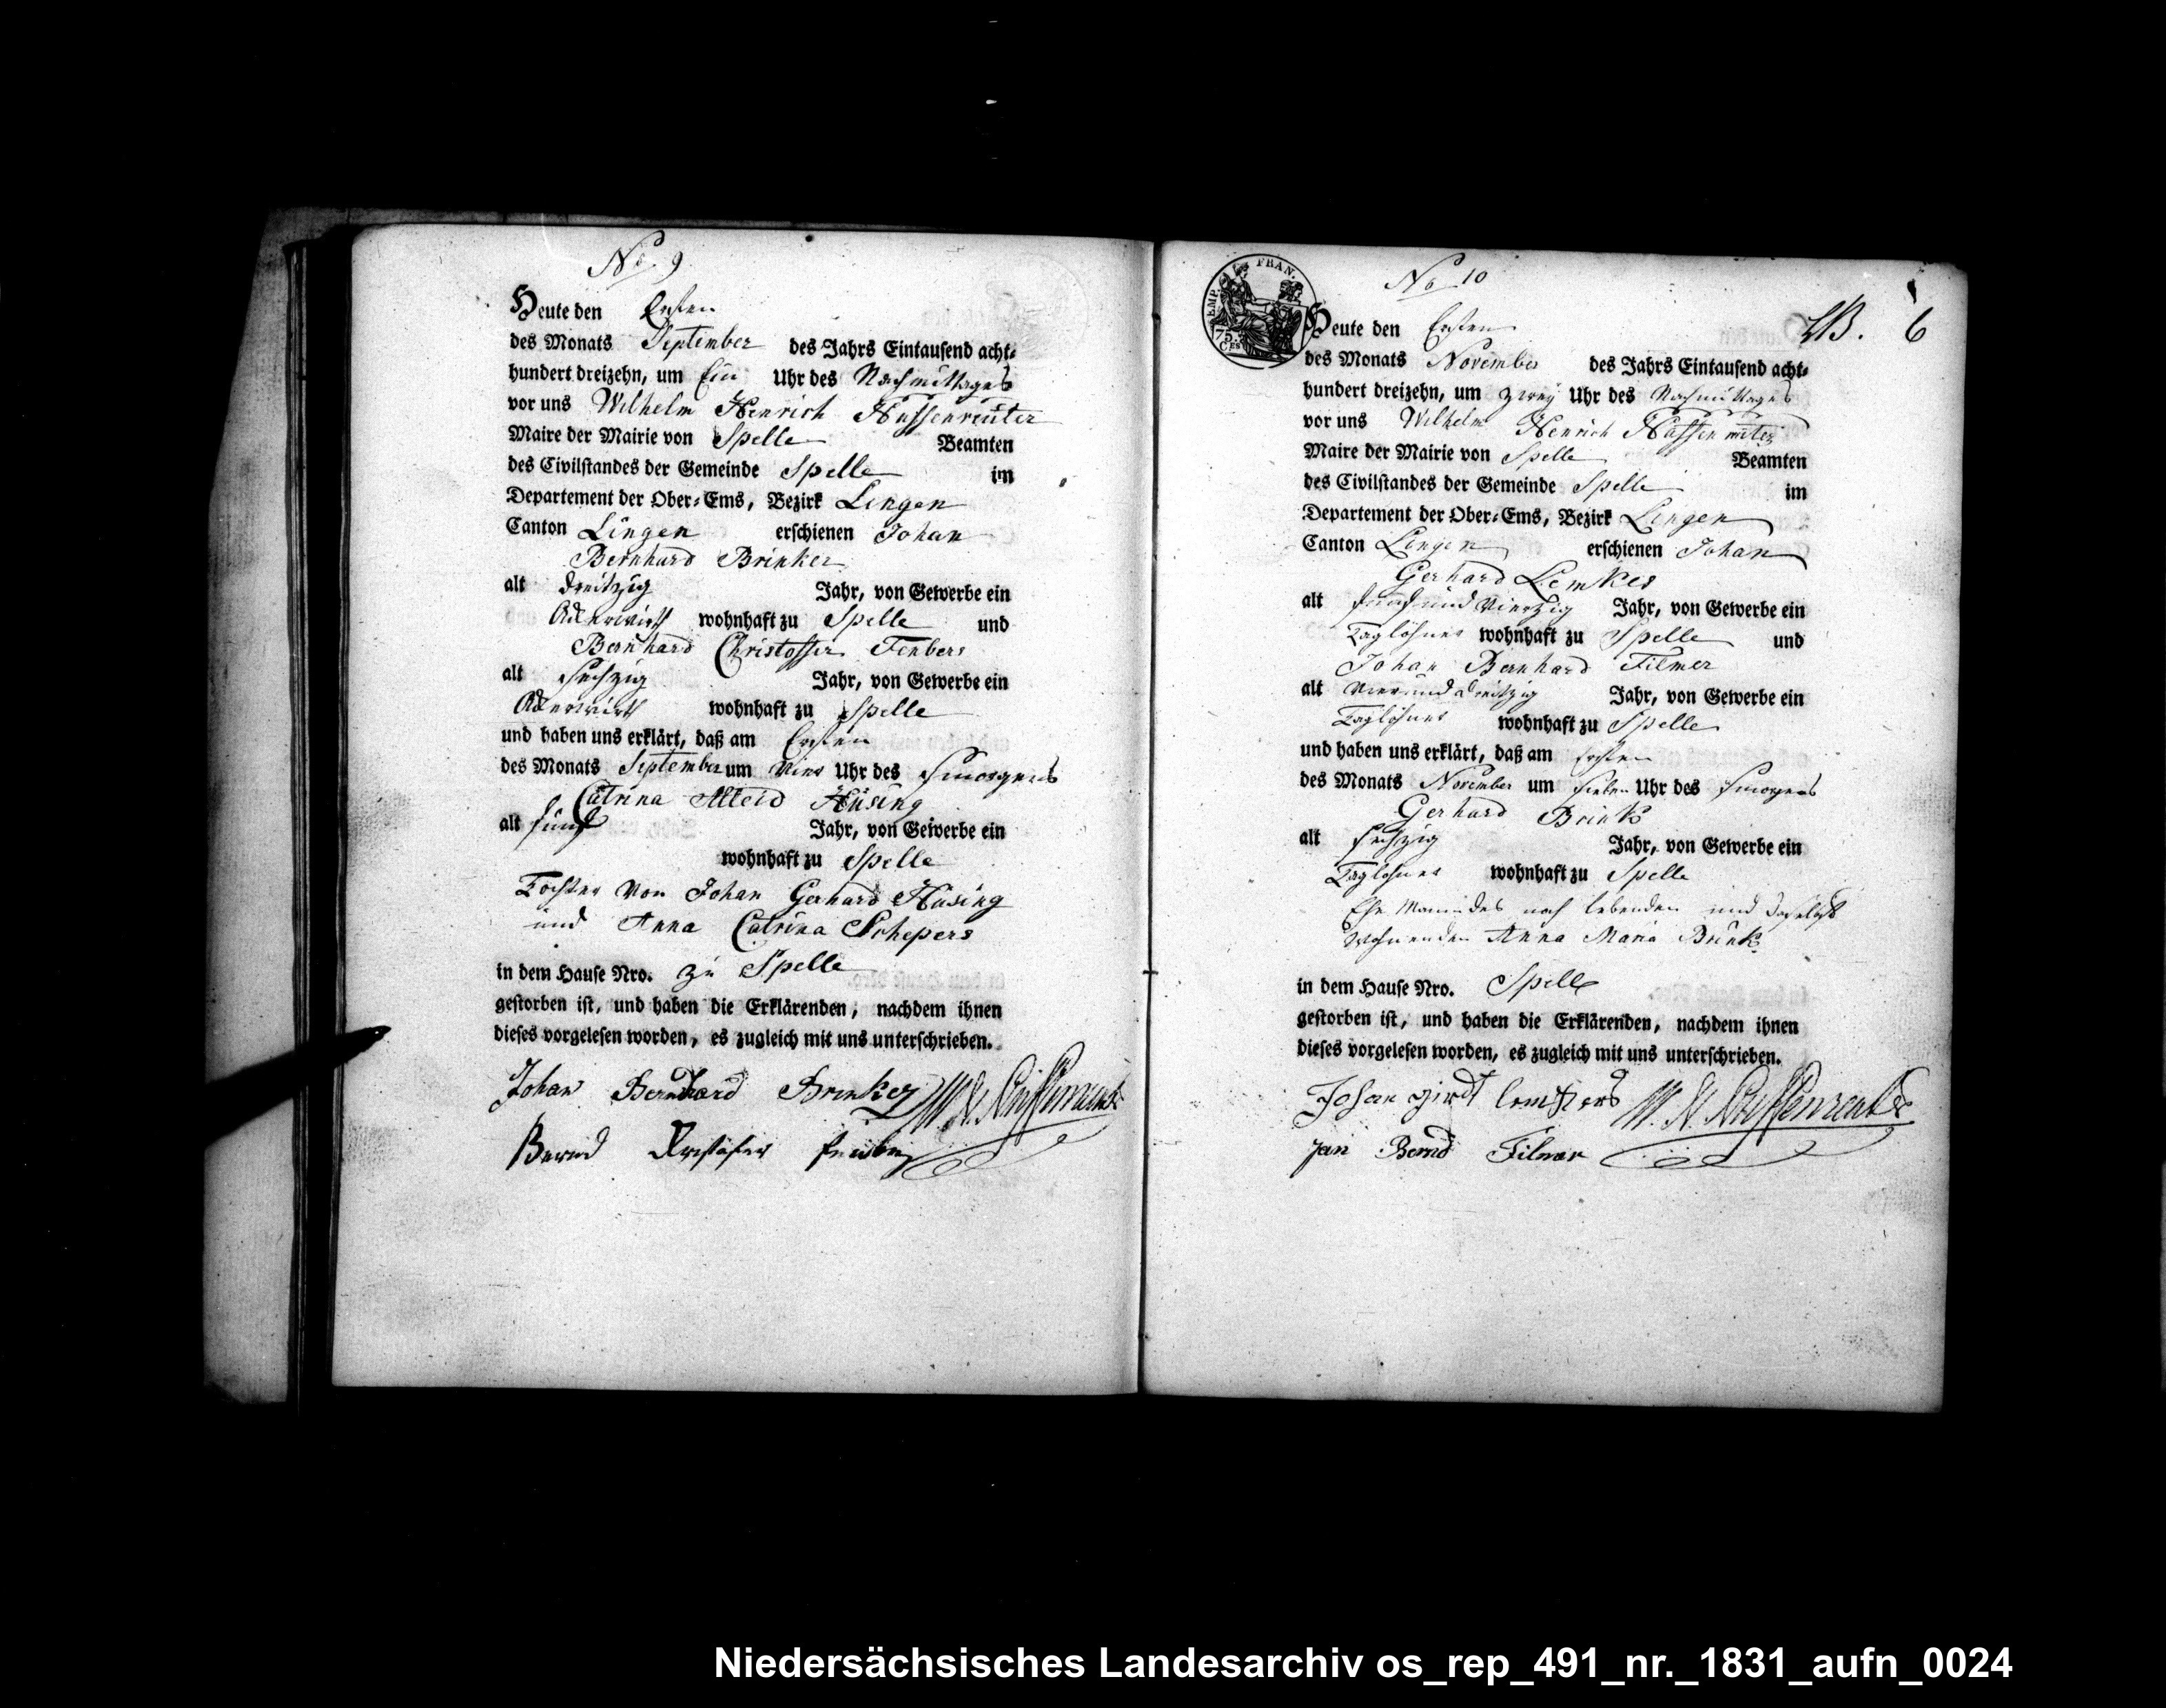 No. 9
Heute den Ersten
des Monats September des Jahrs Eintausend acht-
hundert dreizehn, um Ein Uhr des Nachmittages
vor uns Wilhelm Henrich Hüssenreuter
Maire der Mairie von Spelle Beamten
des Civilstandes der Gemeinde Spelle im
Departement der Ober-Ems, Bezirk Lingen
Canton Lingen erschienen Johan
Bernhard Brinker
alt dreitzig Jahr, von Gewerbe ein
Ackerwirth wohnhaft zu Spelle und
Bernhard Christoffer Fenbers
alt sechzig Jahr, von Gewerbe ein
Ackerwirth wohnhaft zu Spelle
und haben uns erklärt, daß am Ersten
des Monats September um Vier Uhr des smorgens
Catrina Alleid Hüsing
alt fünf Jahr, von Gewerbe ein
wohnhaft zu Spelle
Tochter von Johan Gerhard Hüsing
und Anna Catrina Schepers
in dem Hause Nro. zu Spelle
gestorben ist, und haben die Erklärenden, nachdem ihnen
dieses vorgelesen worden, es zugleich mit uns unterschrieben.
Johan Bernhard Brinker W. H. Hüssenreuter
Bernd
EMP. FRAN.
75.
CES
No 10
6
Heute den Ersten
des Monats November des Jahrs Eintausend acht-
hundert dreizehn, um zwey Uhr des Nachmittages
vor uns Wilhelm Henrich Hüssenreuter
Maire der Mairie von Spelle Beamten
des Civilstandes der Gemeinde Spelle im
Departement der Ober-Ems, Bezirk Lingen
Canton Lingen erschienen Johan
Gerhard Lemkes
alt fünf und Vierzig Jahr, von Gewerbe ein
Taglöhner wohnhaft zu Spelle und
Johan Bernhard Filmer
alt Vier und dreitzig Jahr, von Gewerbe ein
Taglöhner wohnhaft zu Spelle
und haben uns erklärt, daß am Ersten
des Monats November um sieben Uhr des smorgens
Gerhard Brink
alt sechzig Jahr, von Gewerbe ein
Taglöhner wohnhaft zu Spelle
Ehe Mann des noch lebenden und daselbst
Wohnenden Anna Maria Brink
in dem Hause Nro. Spelle
gestorben ist, und haben die Erklärenden, nachdem ihnen
dieses vorgelesen worden, es zugleich mit uns unterschrieben.
Johan W. H. Hüssenreuter
Jan Bernd Filmer
Niedersächsisches Landesarchiv os_rep_491_nr._1831_aufn_0024